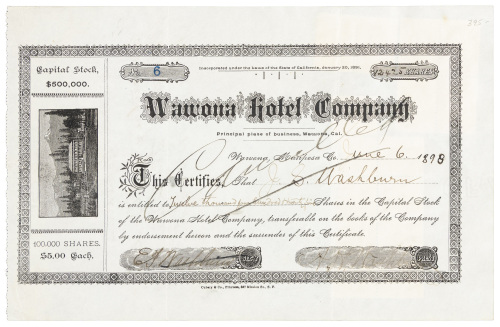 395-
Capital Stock,
$500,000.
No. 6
Incorporated under the Laws of the State of California, January 20, 1891.
SHARES
Wawona Hotel Company
Principal place of business, Wawona, Cal.
Wawona, Mariposa Co. June 6, 1898
This Certifies, That J. S. Washburn
is entitled to Twelve thousand Shares in the Capital Stock
of the Wawona Hotel Company, transferable on the books of the Company
by endorsement hereon and the surrender of this Certificate.
100,000 SHARES
$5.00 Each.
E. P. Washburn